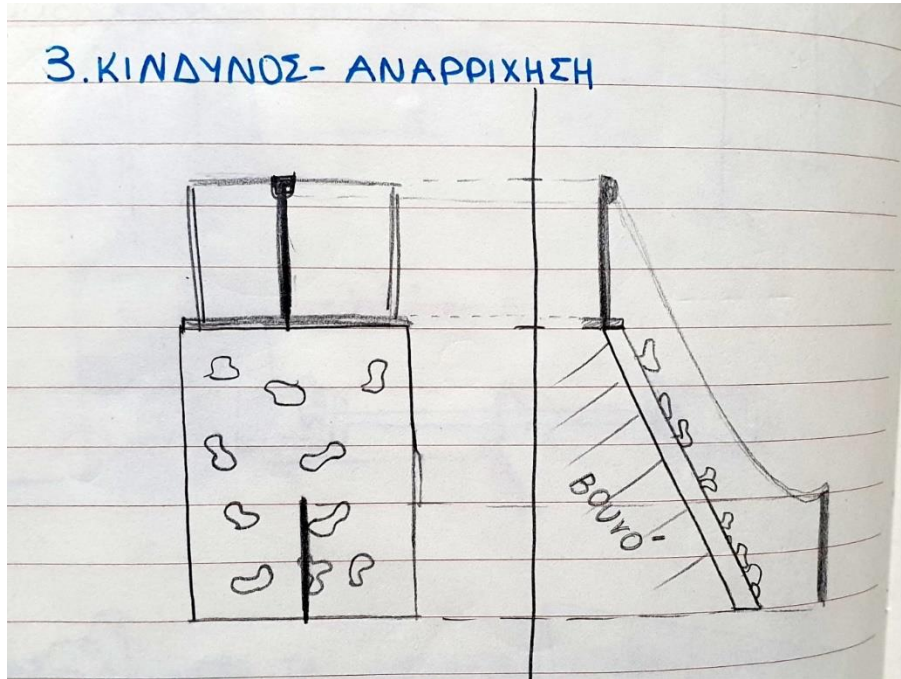 3. ΚΙΝΔΥΝΟΣ- ΑΝΑΡΡΙΧΗΣΗ
ΒΟΥΝΟ'